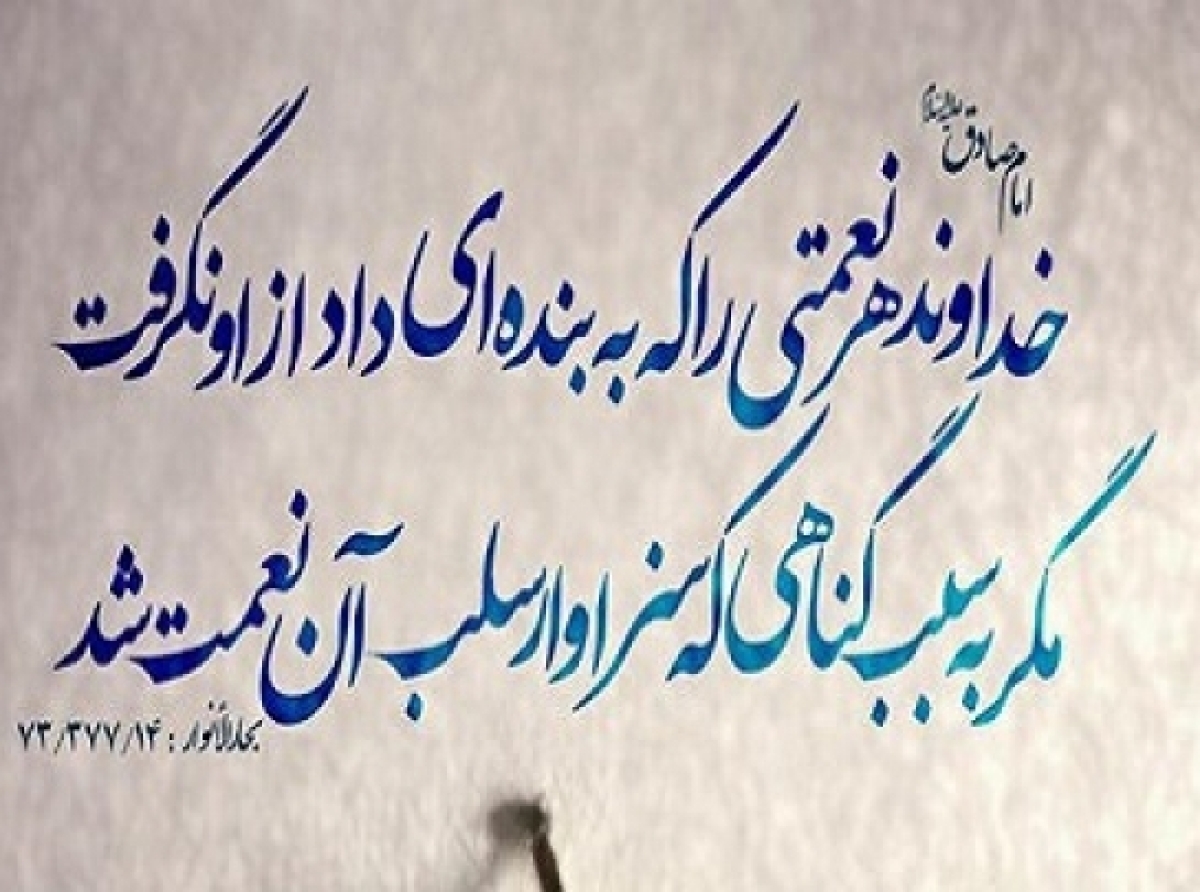 امام صادق علیه‌السلام
خداوند هر نعمتی را که به بنده‌ای داد از او نگرفت
مگر به سبب گناهی که سزاوار سلب آن نعمت شد
بحارالأنوار : ۷۳/۳۷۷/۱۴